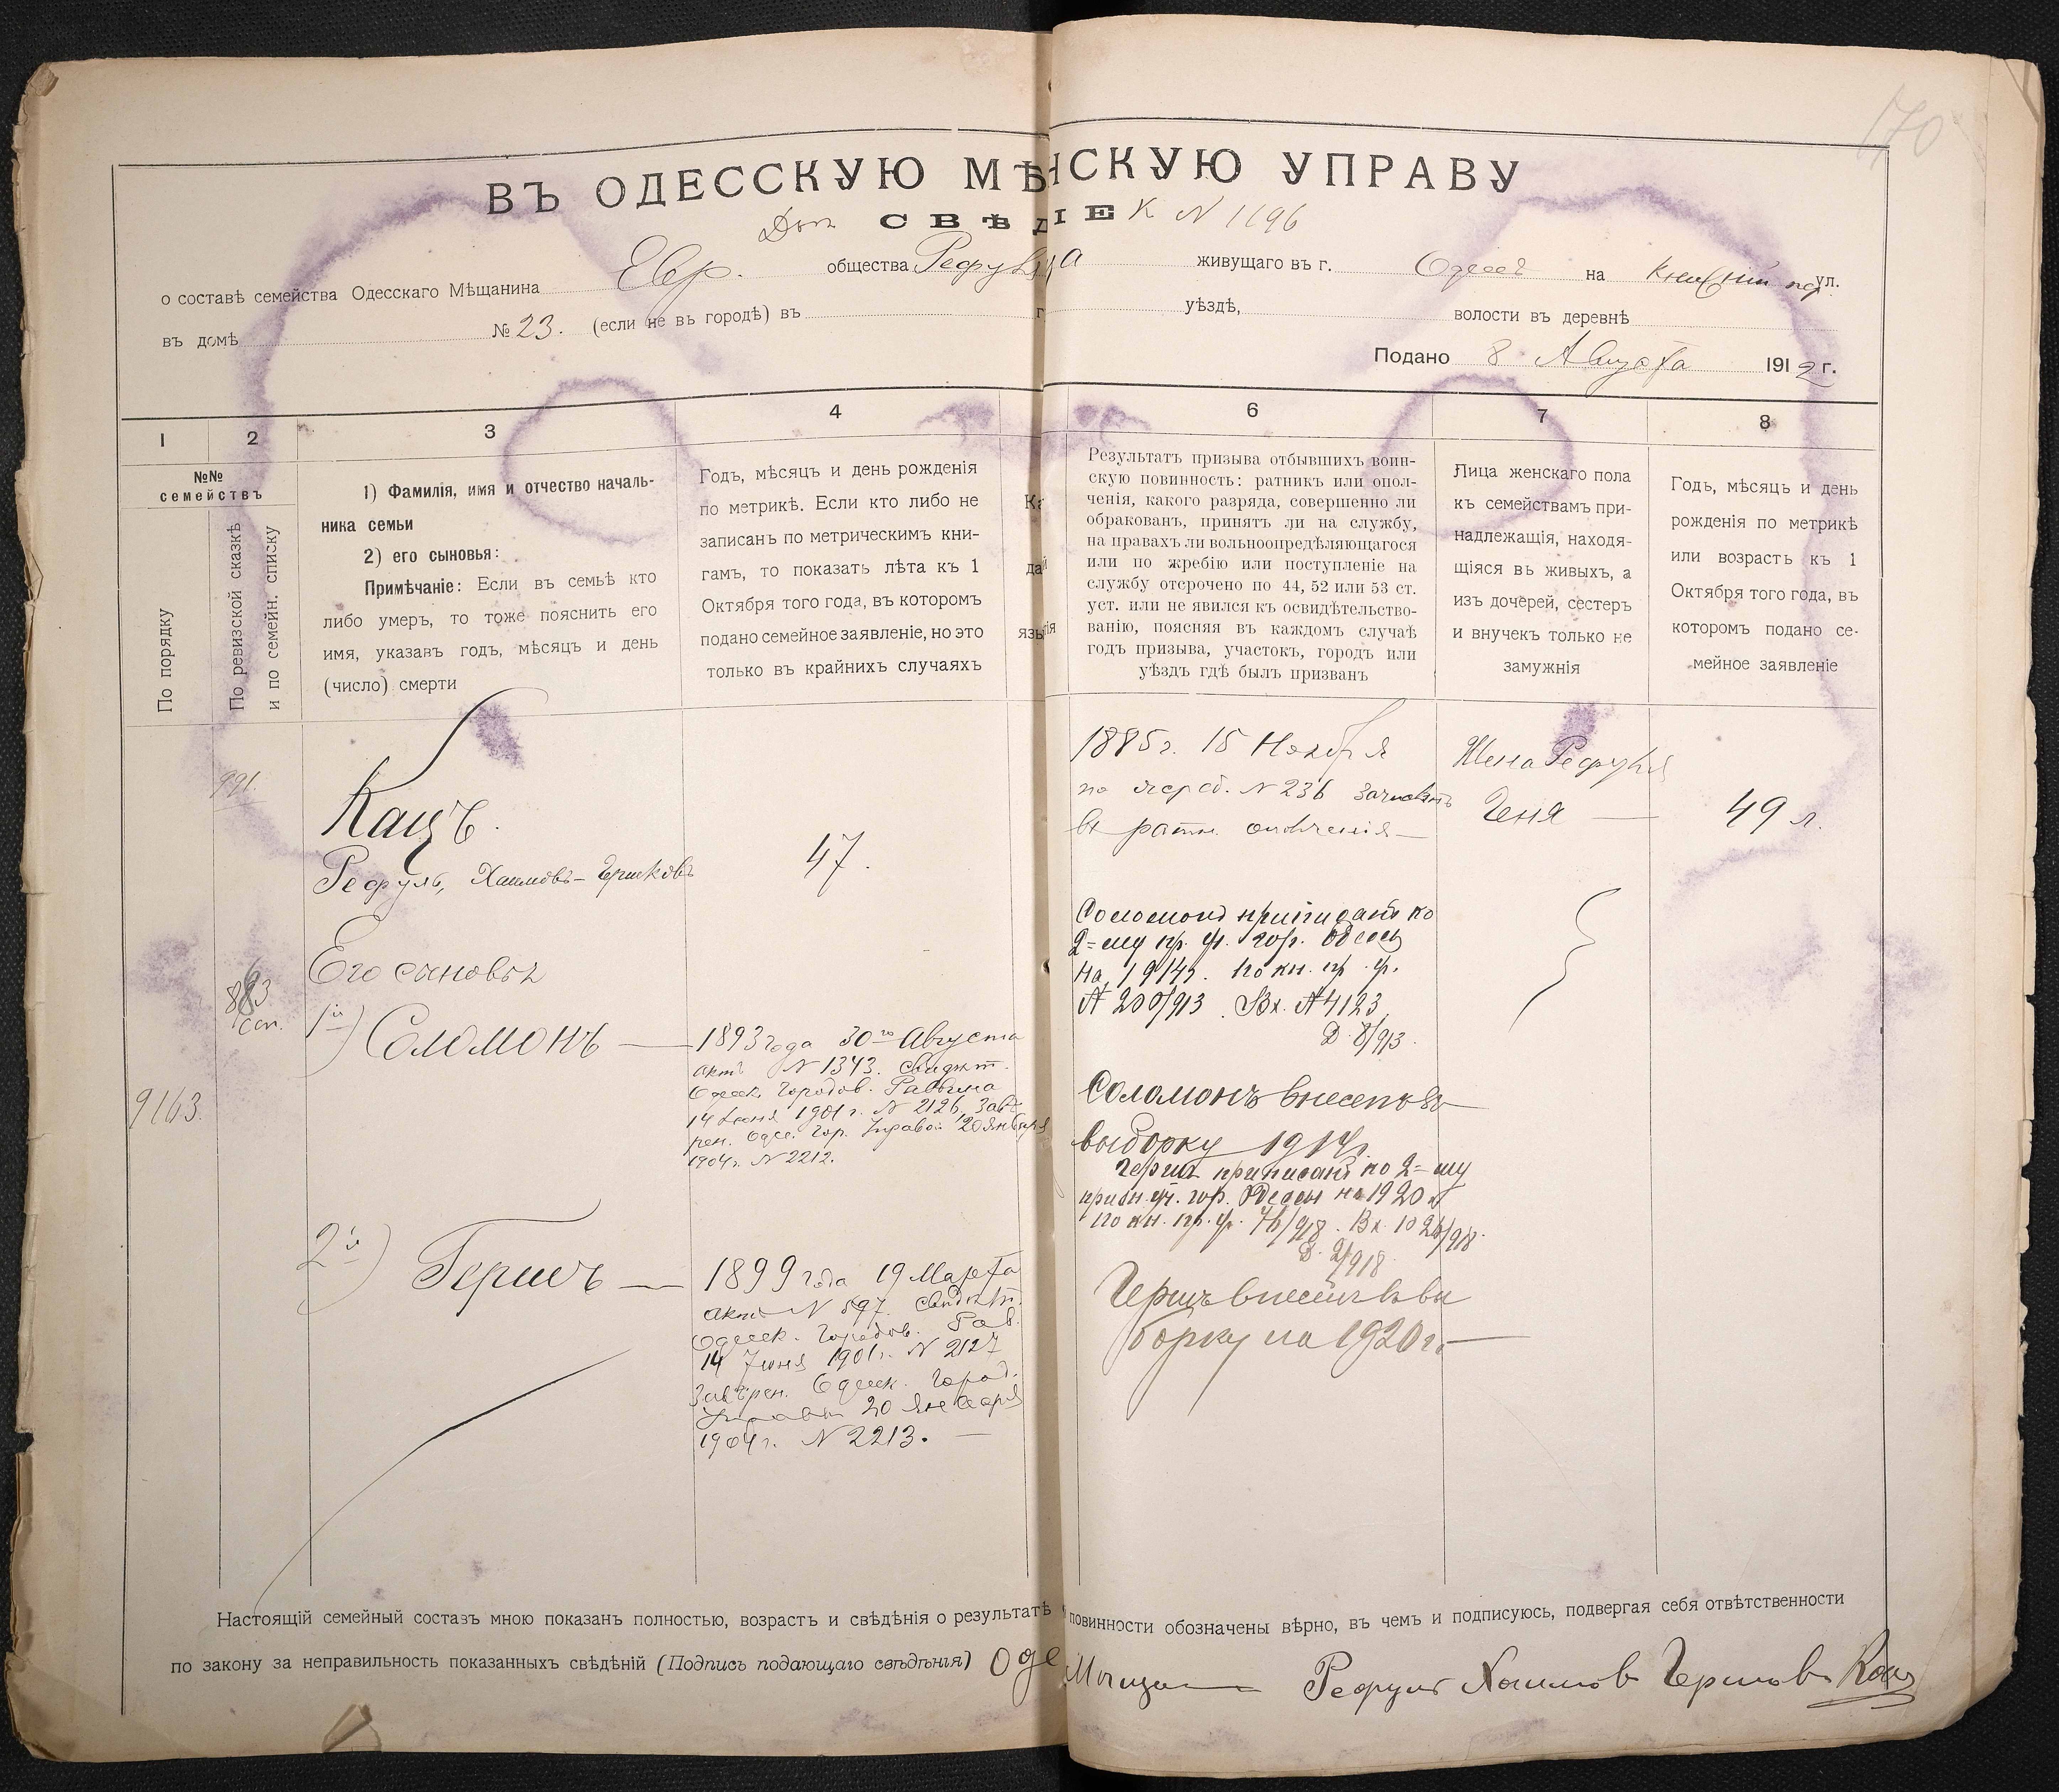 170
ВЪ ОДЕССКУЮ МѢ НСКУЮ УПРАВУ
Доп. СВѢД ІЕ К N 1196
о составѣ семейства Одесскаго Мѣщанина Евр. общества Рефуля живущаго въ г. Одессѣ на Княжій пер. ул.
въ домѣ № 23. (если не въ городѣ) въ уѣздѣ, волости въ деревнѣ
Подано 8 Августа 1912 г.
1 2 3 4 6 7 8
№№ семействъ
По порядку
По ревизской сказкѣ и по семейн. списку
1) Фамилія, имя и отчество началь-
ника семьи
2) его сыновья:
Примѣчаніе: Если въ семьѣ кто
либо умеръ, то тоже пояснить его
имя, указавъ годъ, мѣсяцъ и день
(число) смерти
Годъ, мѣсяцъ и день рожденія
по метрикѣ. Если кто либо не
записанъ по метрическимъ кни-
гамъ, то показать лѣта къ 1
Октября того года, въ которомъ
подано семейное заявленіе, но это
только въ крайнихъ случаяхъ
Результатъ призыва отбывшихъ воин-
скую повинность: ратникъ или опол-
ченія, какого разряда, совершенно ли
обракованъ, принятъ ли на службу,
на правахъ ли вольноопредѣляющагося
или по жребію или поступленіе на
службу отсрочено по 44, 52 или 53 ст.
уст. или не явился къ освидѣтельство-
ванію, поясняя въ каждомъ случаѣ
годъ призыва, участокъ, городъ или
уѣздъ гдѣ былъ призванъ
Лица женскаго пола
къ семействамъ при-
надлежащія, находя-
щіяся въ живыхъ, а
изъ дочерей, сестеръ
и внучекъ только не
замужнія
Годъ, мѣсяцъ и день
рожденія по метрикѣ
или возрасть къ 1
Октября того года, въ
которомъ подано се-
мейное заявленіе
991.
Кацъ.
Рефуль, Хаимовъ-Гершковъ
47.
1885 г. 15 Ноября
по жереб. N 236 зачисленъ
въ ратн. ополченія
Жена Рефуля
Геня — 49 л.
Его сыновья
883
9163.
1й) Соломонъ —
1893 года 30го Августа
актъ N 1343. свидѣт.
Одесск. Городов. Раввина
14 Іюня 1901 г. N 2126, завѣ-
рен. Одес. Гор. Управой 20 Января
1904 г. N 2212.
Соломонъ приписанъ ко
2=му пр. уч. гор. Одессы
на 1914 г. по кн. пр. уч.
N 200/913. Вх. N 4123
Д. 8/913.
Соломонъ внесенъ въ
выборку 1914 г.
Гершъ приписанъ ко 2=му
призн. уч. гор. Одессы на 1920 г
по кн. пр. уч. 76/918. Вх. 1026/918.
Д. 2/918
2й) Гершъ —
1899 года 19 Марта
актъ N 597. свидѣт.
Одесск. Городов. Рав.
14 Іюня 1901 г. N 2127
Завѣрен. Одесск. Город.
Управы 20 Января
1904 г. N 2213. —
Гершъ внесенъ въ вы
борку на 1920 г. —
Настоящій семейный составъ мною показанъ полностью, возрастъ и свѣдѣнія о результатѣ повинности обозначены вѣрно, въ чемъ и подписуюсь, подвергая себя отвѣтственности
по закону за неправильность показанныхъ свѣдѣній (Подпись подающаго свѣдѣнія) Оде Мѣща Рефуль Хаимов Гершов Кац